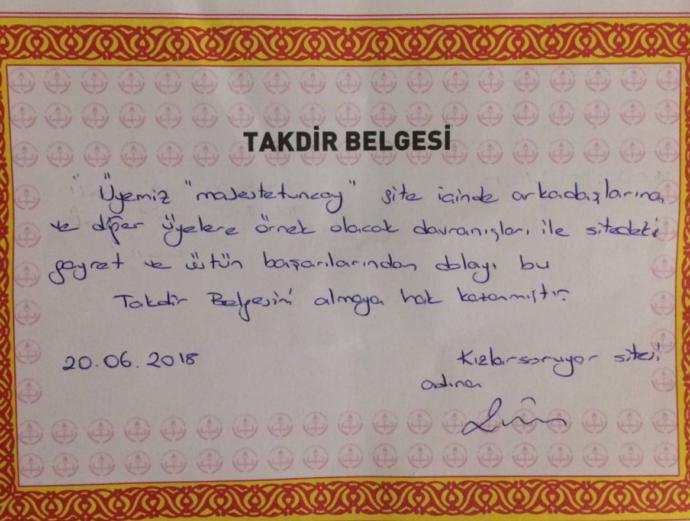 TAKDİR BELGESİ
Üyemiz "majestetuncay" site içinde arkadaşlarına
ve diğer üyelere örnek olacak davranışları ile sitedeki
gayret ve üstün başarılarından dolayı bu
Takdir Belgesini almaya hak kazanmıştır.
20.06.2018
Kızlarsoruyor sitesi
adına